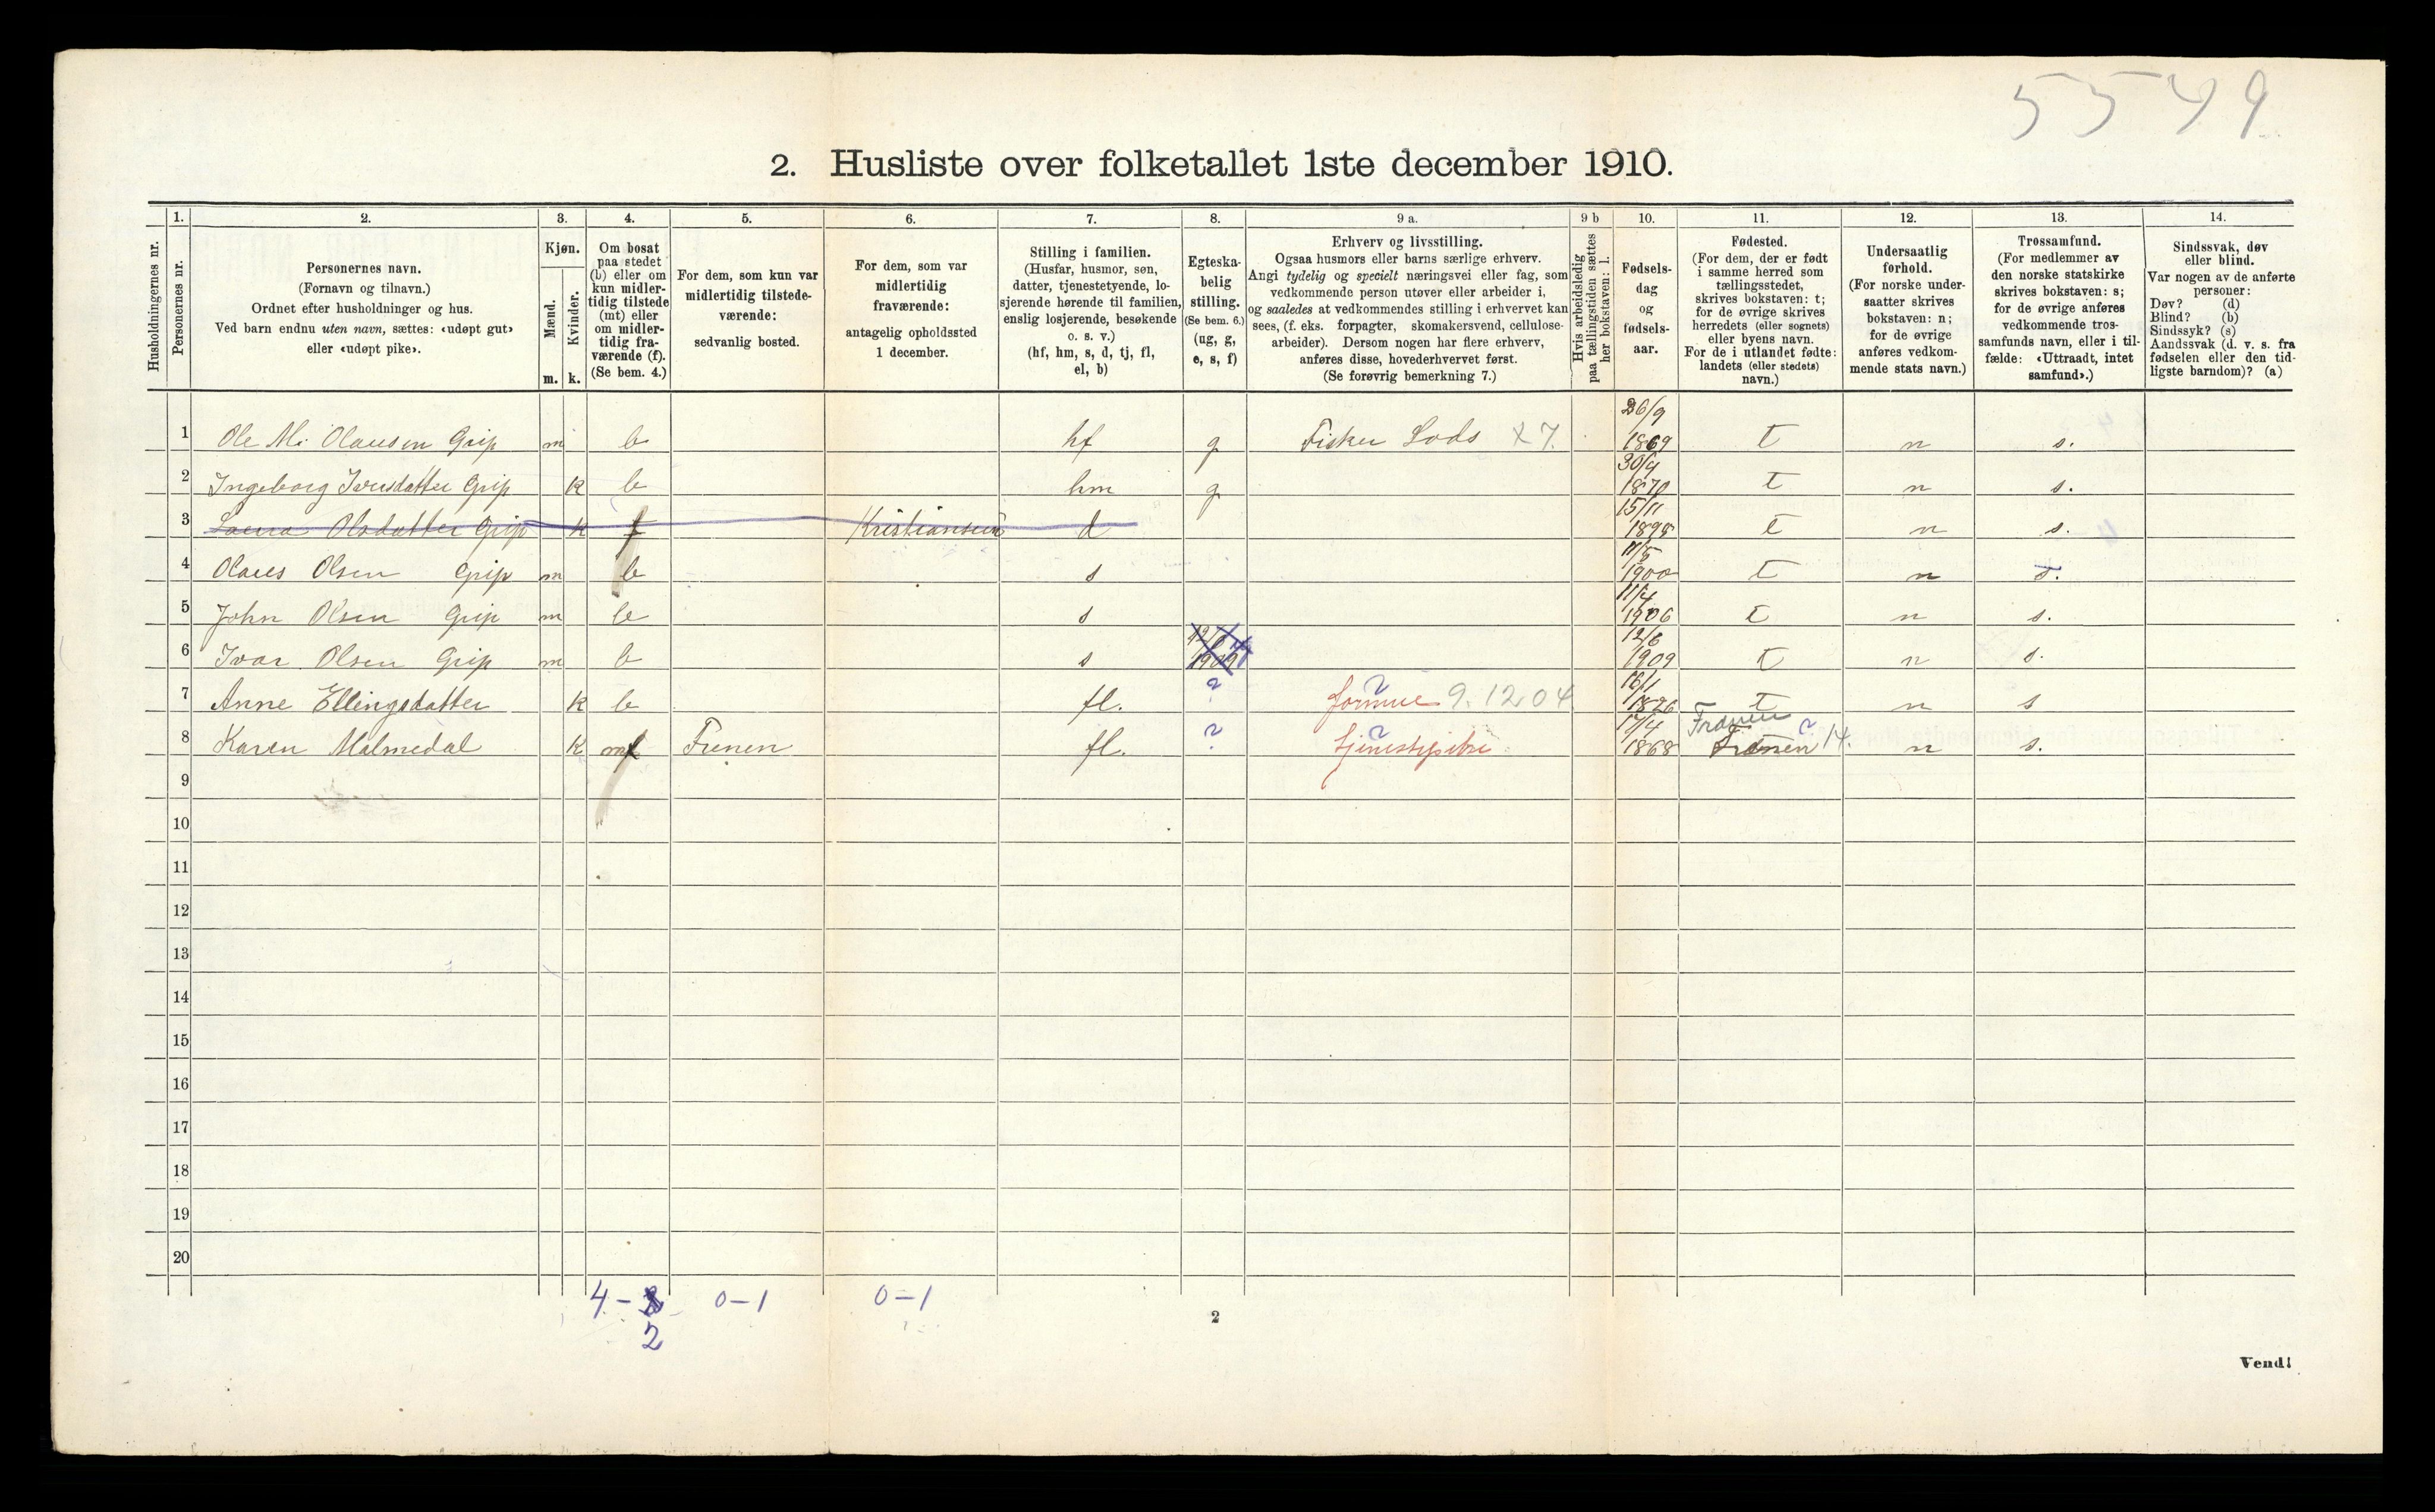 5549
2. Husliste over folketallet 1ste december 1910.
Husholdningernes nr.
1.
Personernes nr.
2.
Personernes navn.
(Fornavn og tilnavn.)
Ordnet efter husholdninger og hus.
Ved barn endnu uten navn, sættes: «udøpt gut»
eller «udøpt pike».
3.
Kjøn.
Mænd.
Kvinder.
m. k.
4.
Om bosat
paa stedet
(b) eller om
kun midler-
tidig tilstede
(mt) eller
om midler-
tidig fra-
værende (f).
(Se bem. 4.)
5.
For dem, som kun var
midlertidig tilstede-
værende:
sedvanlig bosted.
6.
For dem, som var
midlertidig
fraværende:
antagelig opholdssted
1 december.
7.
Stilling i familien.
(Husfar, husmor, søn,
datter, tjenestetyende, lo-
sjerende hørende til familien,
enslig losjerende, besøkende
o. s. v.)
(hf, hm, s, d, tj, fl,
el, b)
8.
Egteska-
belig
stilling.
(Se bem. 6.)
(ug, g,
e, s, f)
9 a.
Erhverv og livsstilling.
Ogsaa husmors eller barns særlige erhverv.
Angi tydelig og specielt næringsvei eller fag, som
vedkommende person utøver eller arbeider i,
og saaledes at vedkommendes stilling i erhvervet kan
sees, (f. eks. forpagter, skomakersvend, cellulose-
arbeider). Dersom nogen har flere erhverv,
anføres disse, hovederhvervet først.
(Se forøvrig bemerkning 7.)
9 b
Hvis arbeidsledig
paa tællingstiden sættes
her bokstaven: l.
10.
Fødsels-
dag
og
fødsels-
aar.
11.
Fødested.
(For dem, der er født
i samme herred som
tællingsstedet,
skrives bokstaven: t;
for de øvrige skrives
herredets (eller sognets)
eller byens navn.
For de i utlandet fødte:
landets (eller stedets)
navn.)
12.
Undersaatlig
forhold.
(For norske under-
saatter skrives
bokstaven: n;
for de øvrige
anføres vedkom-
mende stats navn.)
13.
Trossamfund.
(For medlemmer av
den norske statskirke
skrives bokstaven: s;
for de øvrige anføres
vedkommende tros-
samfunds navn, eller i til-
fælde: «Uttraadt, intet
samfund».)
14.
Sindssvak, døv
eller blind.
Var nogen av de anførte
personer:
Døv? (d)
Blind? (b)
Sindssyk? (s)
Aandssvak (d. v. s. fra
fødselen eller den tid-
ligste barndom)? (a)
1 Ole M. Olausen Grip m b hf g Fisker Lods X 7. 26/9 1869 t n s.
2 Ingeborg Iversdatter Grip k b hm g 30/4 1870 t n s.
3 Laura Olsdatter Grip k f Kristiansund d 15/11 1898 t n s.
4 Olaus Olsen Grip m b s 11/5 1900 t n s.
5 John Olsen Grip m b s 11/4 1906 t n s.
6 Ivar Olsen Grip m b s 12/6 1909 12/6 1909 t n s.
7 Anne Ellingsdatter k b fl. ? formue 9.12 04 16/1 1826 t n s
8 Karen Malmedal k mt Frenen fl. ? tjenestepike 17/4 1868 Frænen 14. n s.
9
10
11
12
13
14
15
16
17
18
19
20
4 - 2 0-1 0-1
2
Vend!